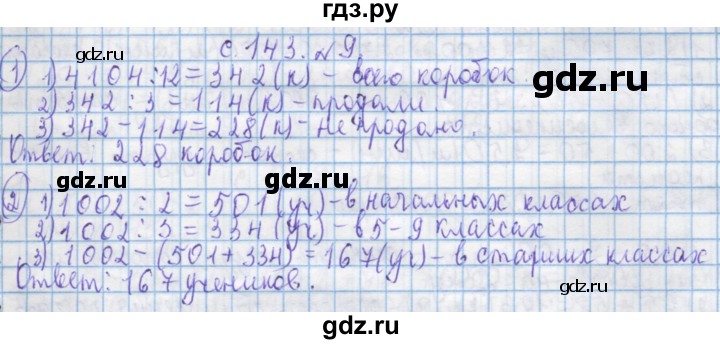 гдз.ру
с. 143. №9.
gdz.ru gdz.ru
① 1) 4104:12=342(к) - всего коробок
2) 342:3=114(к) - продали
3) 342-114=228(к) - не продано.
Ответ: 228 коробок.
gdz.ru gdz.ru
② 1) 1002:2=501(уч) - в начальных классах
2) 1002:3=334(уч) - в 5-9 классах
3) 1002-(501+334)=167(уч) - в старших классах
Ответ: 167 учеников.
gdz.ru gdz.ru